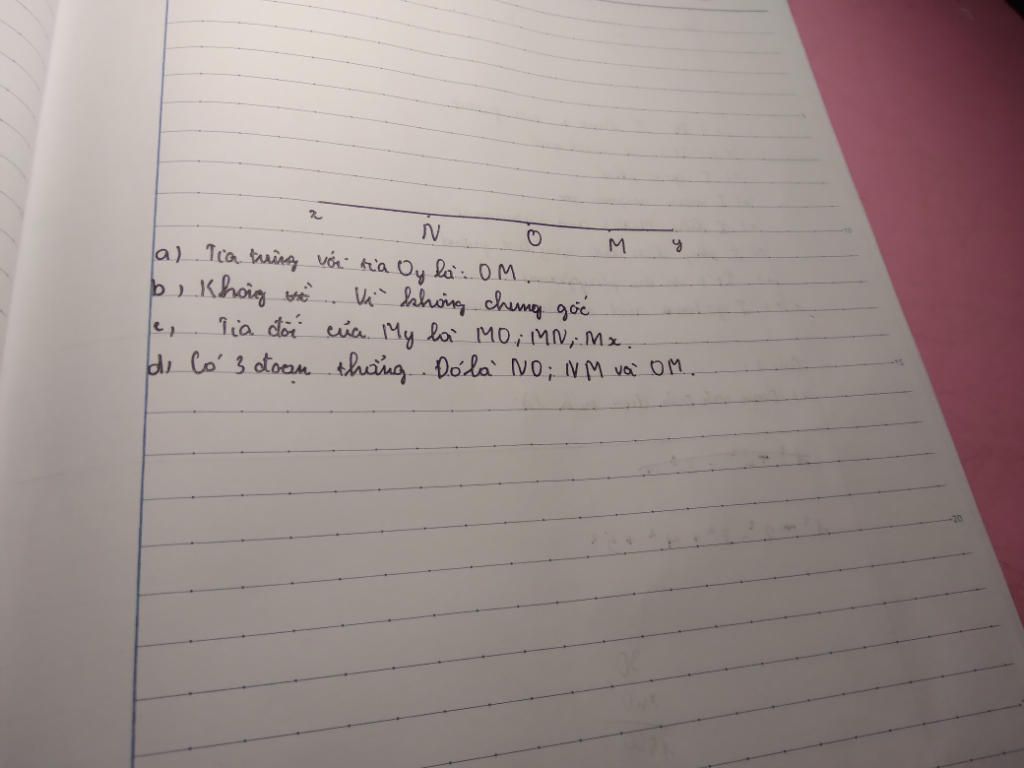 x N O M y
a) Tia trùng với tia Oy là: OM.
b, Không. Vì không chung gốc
c, Tia đối của My là MO; MN; Mx.
d, Có 3 đoạn thẳng. Đó là NO; NM và OM.
20